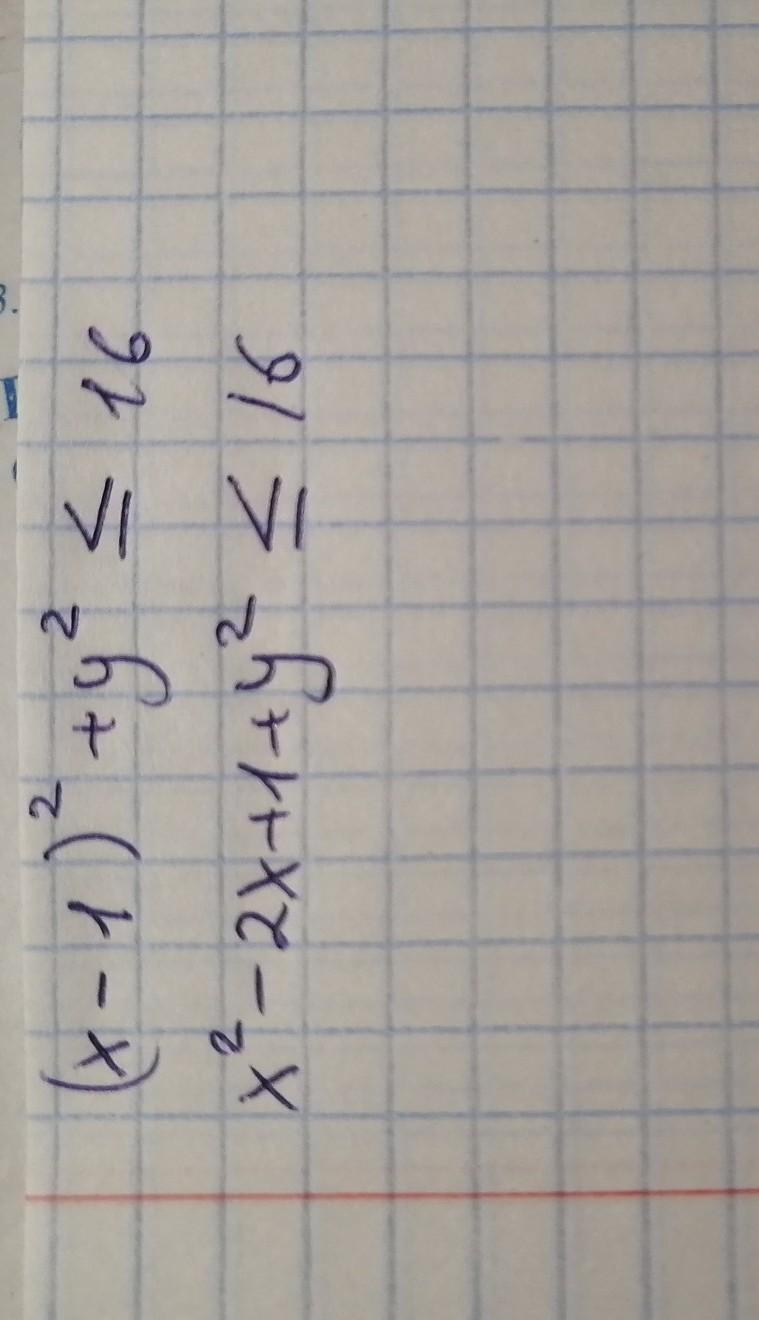 (x-1)² + y² ≤ 16
x² - 2x + 1 + y² ≤ 16